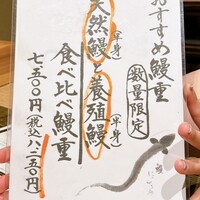 おすすめ鰻重
数量限定
天然鰻(半身)と養殖鰻(半身)
食べ比べ鰻重
七五〇〇円(税込八二五〇円)